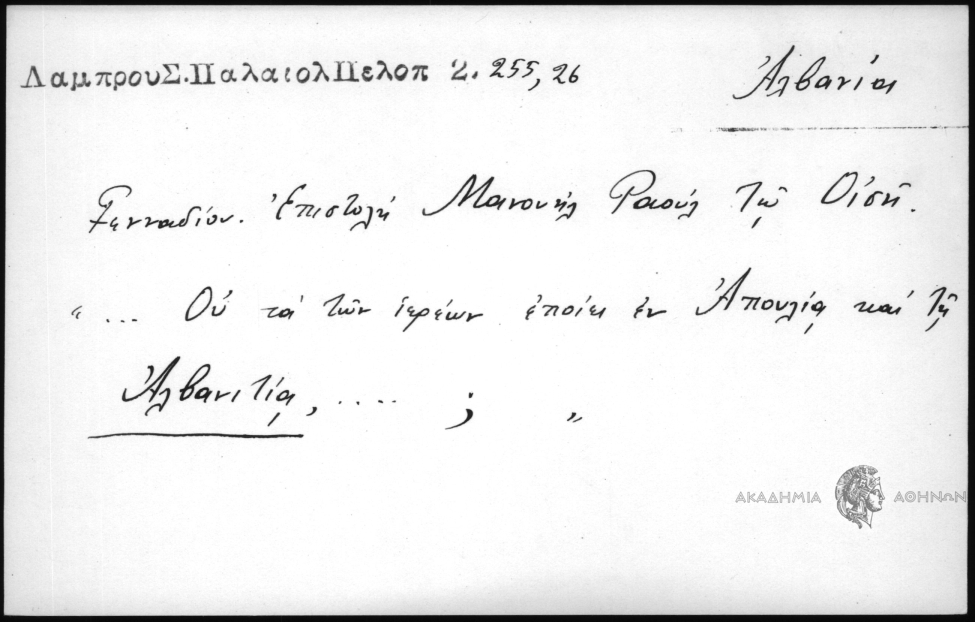 ΛαμπρουΣ.ΠαλαιολΠελοπ 2. 255, 26
Ἀλβανία
Γενναδίου. Ἐπιστολή Μανουήλ Ραούλ τῷ Οἰσῇ.
" ... Οὐ τά τῶν ἱερέων ἐποίει ἐν Ἀπουλίᾳ καί τῇ
Ἀλβανιτίᾳ, .... ; "
ΑΚΑΔΗΜΙΑ ΑΘΗΝΩΝ